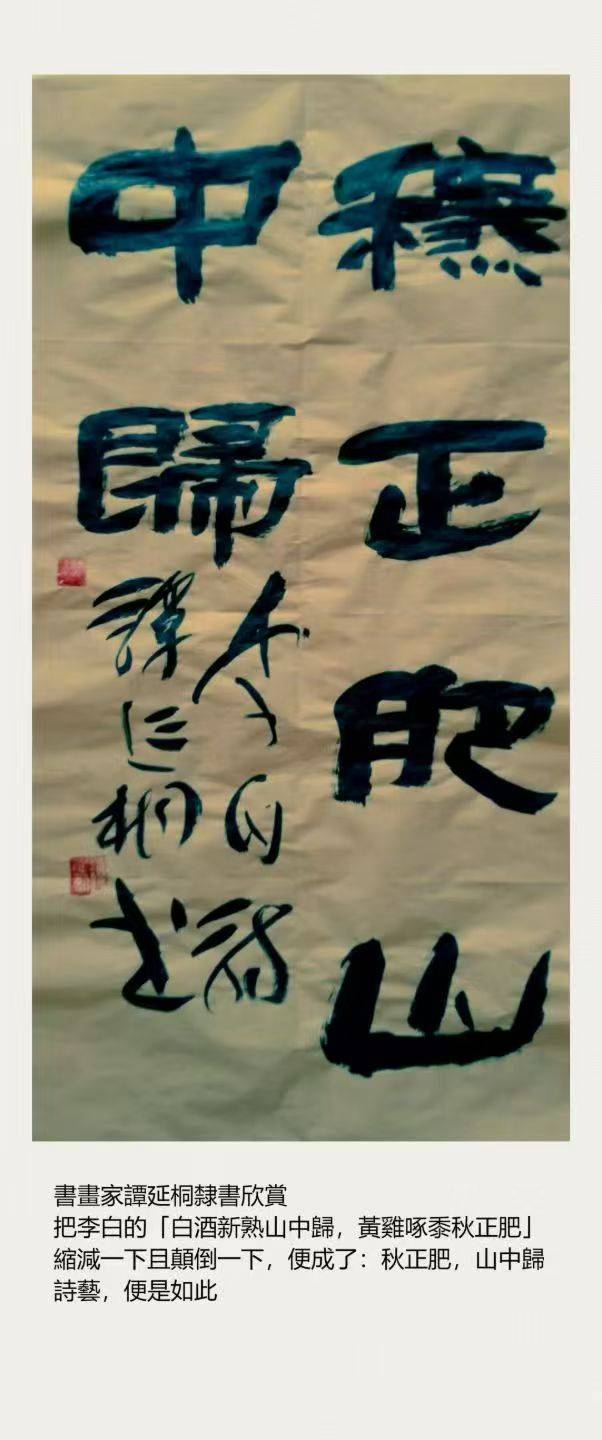 秋正肥山
中歸
李白詩
譚延桐書
書畫家譚延桐隸書欣賞
把李白的「白酒新熟山中歸，黃雞啄黍秋正肥」
縮減一下且顛倒一下，便成了：秋正肥，山中歸
詩藝，便是如此